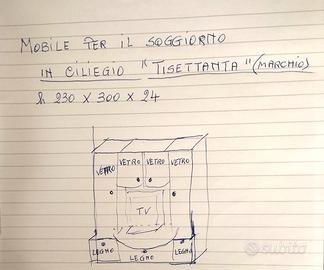 MOBILE PER IL SOGGIORNO
IN CILIEGIO "TISETTANTA" (MARCHIO)
h 230 X 300 X 24
VETRO VETRO VETRO VETRO
TV
LEGNO LEGNO LEGNO
subito